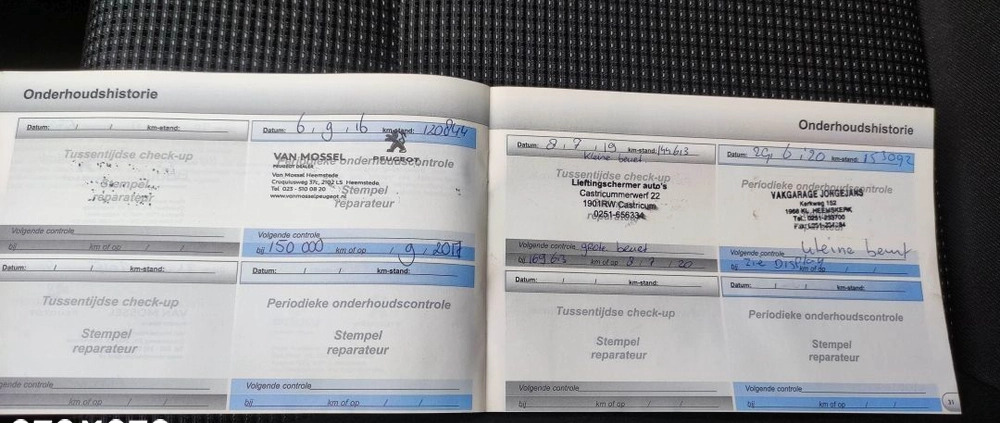 Onderhoudshistorie
Datum: / / km-stand:
Tussentijdse check-up
Stempel
reparateur
Volgende controle
bij km of op / /
Datum: 6 , 9 , 16 km-stand: 120844
Periodieke onderhoudscontrole
VAN MOSSEL
PEUGEOT DEALER
PEUGEOT
Van Mossel Heemstede
Cruquiusweg 37c, 2102 LS Heemstede
Tel. 023 - 510 08 20
www.vanmosselpeugeot.nl
Stempel
reparateur
Volgende controle
bij 150 000 km of op / 9 , 2017
Datum: / / km-stand:
Tussentijdse check-up
Stempel
reparateur
Volgende controle
km of op / /
Datum: / / km-stand:
Periodieke onderhoudscontrole
Stempel
reparateur
Volgende controle
bij km of op / /
Onderhoudshistorie
Datum: 8 , 7 , 19 km-stand:
kleine beurt
Tussentijdse check-up
Lieftingschermer auto's
Castricummerwerf 22
1901RW Castricum
0251-656334
Volgende controle grote beurt
bij km of op 8 / 7 / 20
Datum: 6 , 20 km-stand: 153092
Periodieke onderhoudscontrole
VAKGARAGE JONGEJANS
Kerkweg 152
1968 KL HEEMSKERK
kleine beurt
Volgende controle
bij zie Display km of op / /
Datum: / / km-stand:
Tussentijdse check-up
Stempel
reparateur
Volgende controle
bij km of op / /
Datum: / / km-stand:
Periodieke onderhoudscontrole
Stempel
reparateur
Volgende controle
bij km of op / /
31